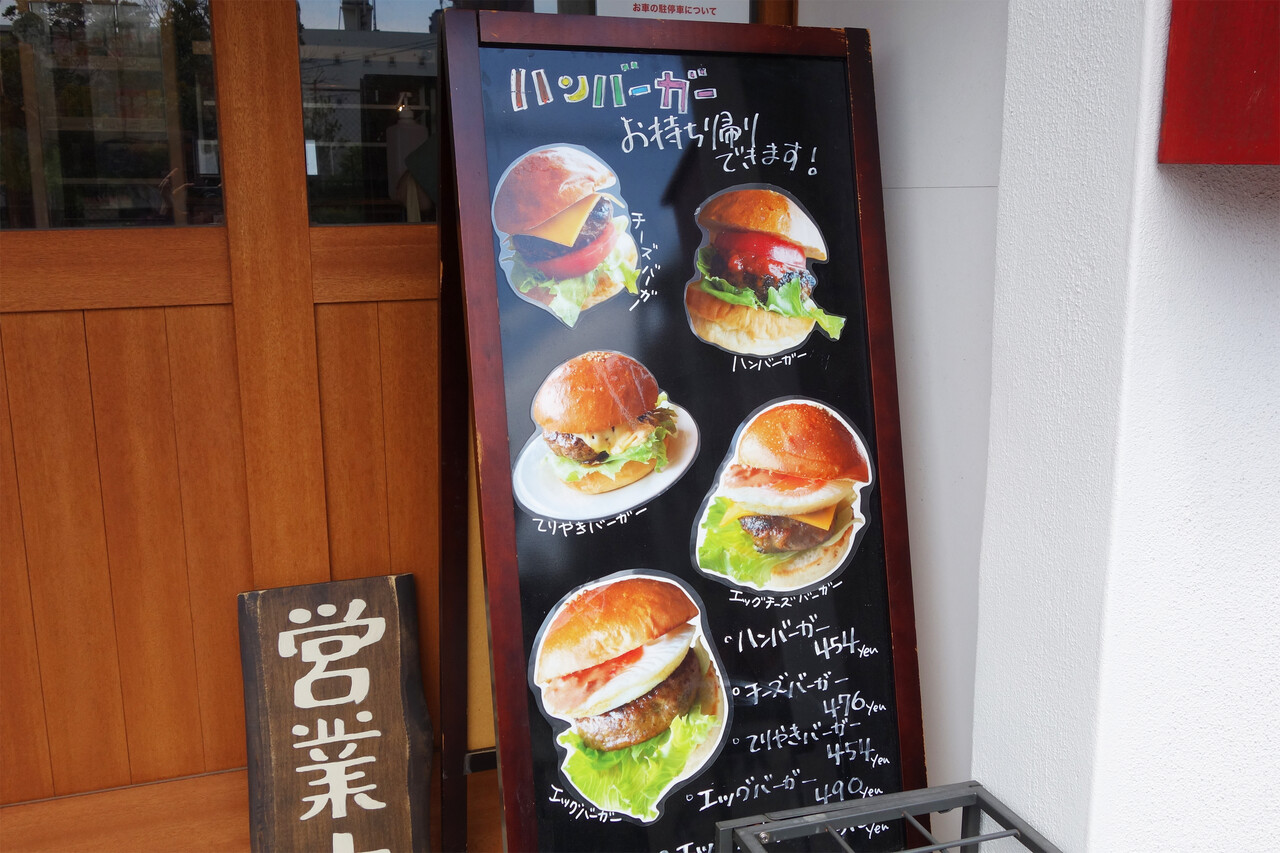 お車の駐停車について
ハンバーガー
お持ち帰り
できます!
チーズバーガー
ハンバーガー
てりやきバーガー
エッグチーズバーガー
エッグバーガー
°ハンバーガー
454yen
°チーズバーガー
476yen
°てりやきバーガー
454yen
°エッグバーガー 490yen
yen
営業